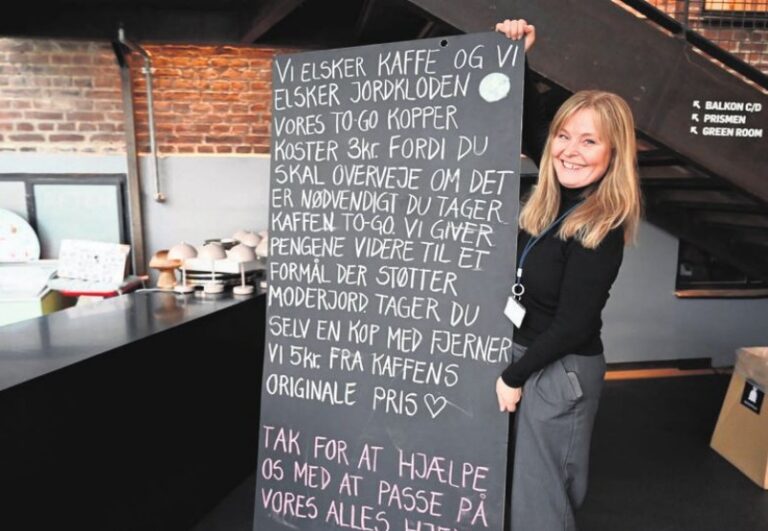 VI ELSKER KAFFE OG VI
ELSKER JORDKLODEN
VORES TO-GO KOPPER
KOSTER 3KR. FORDI DU
SKAL OVERVEJE OM DET
ER NØDVENDIGT DU TAGER
KAFFEN TO-GO. VI GIVER
PENGENE VIDERE TIL ET
FORMÅL DER STØTTER
MODERJORD. TAGER DU
SELV EN KOP MED FJERNER
VI 5KR. FRA KAFFENS
ORIGINALE PRIS ♡
TAK FOR AT HJÆLPE
OS MED AT PASSE PÅ
VORES ALLES
↖ BALKON C/D
↖ PRISMEN
↖ GREEN ROOM